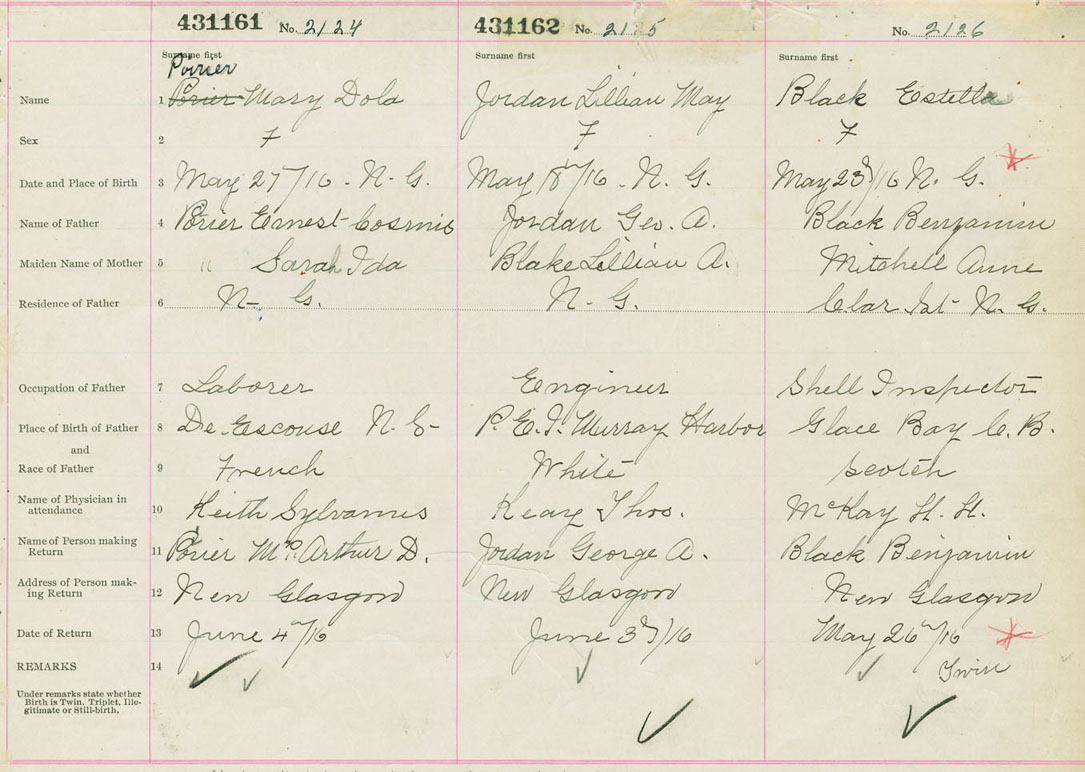 431161 No. 2124 431162 No. 21 5 No. 2126
Surname first Surname first Surname first
Poirier
Name 1 Porier Mary Dola Jordan Lillian May Black Estella
Sex 2 F F F
Date and Place of Birth 3 May 27/16 - N. G. May 18/16 . N. G. May 23d/16 N. G.
Name of Father 4 Porier Ernest Cosmis Jordan Geo. A. Black Benjamin
Maiden Name of Mother 5 " Sarah Ida Blake Lillian A. Mitchell Anne
Residence of Father 6 N- G. N- G. N. G.
Occupation of Father 7 Laborer Engineer Shell Inspector
Place of Birth of Father 8 De-Escouse N. S- P. E. I. Murray Harbor Glace Bay C. B.
and
Race of Father 9 French White Scotch
Name of Physician in
attendance 10 Keith Sylvannis Keay Thos. McKay H. H.
Name of Person making
Return 11 Porier Arthur D. Jordan George A. Black Benjamin
Address of Person mak-
ing Return 12 New Glasgow New Glasgow New Glasgow
Date of Return 13 June 4/16 June 3d/16 May 26/16
REMARKS 14 Twin
Under remarks state whether
Birth is Twin, Triplet, Ille-
gitimate or Still-birth.